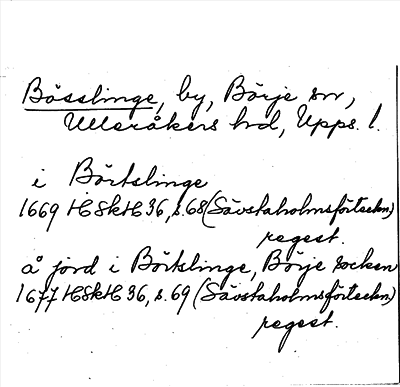 Bösslinge, by, Börje sn,
Ulleråkers hd, Upps. l.
i Börtslinge
1669 HSkH 36, s. 68 (Sävstaholmsförteckn)
regest.
å jord i Börtslinge, Börje socken
1677 HSkH 36, s. 69 (Sävstaholmsförteckn)
regest.